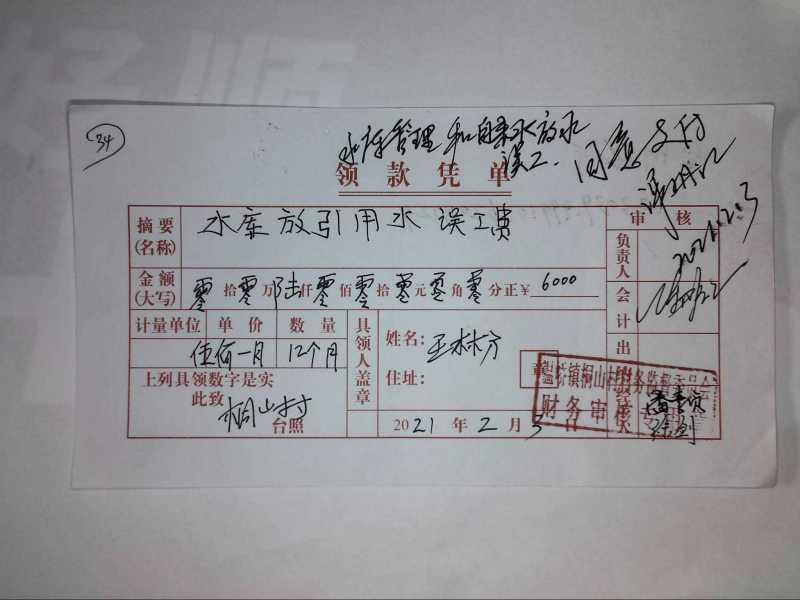 34
水库管理和自来水放水
误工.
同意支付
2021.2.3
领款凭单
摘要(名称) 水库放引用水误工费
审核
负责人
金额(大写) 零拾零万陆仟零佰零拾零元零角零分正¥ 6000
会计
计量单位 单价 数量
伍佰一月 12个月
具领人盖章
姓名: 王林方
住址:
章
出纳
上列具领数字是实
此致
桐山村
台照
2021年2月3日
镇桐山村
财务审